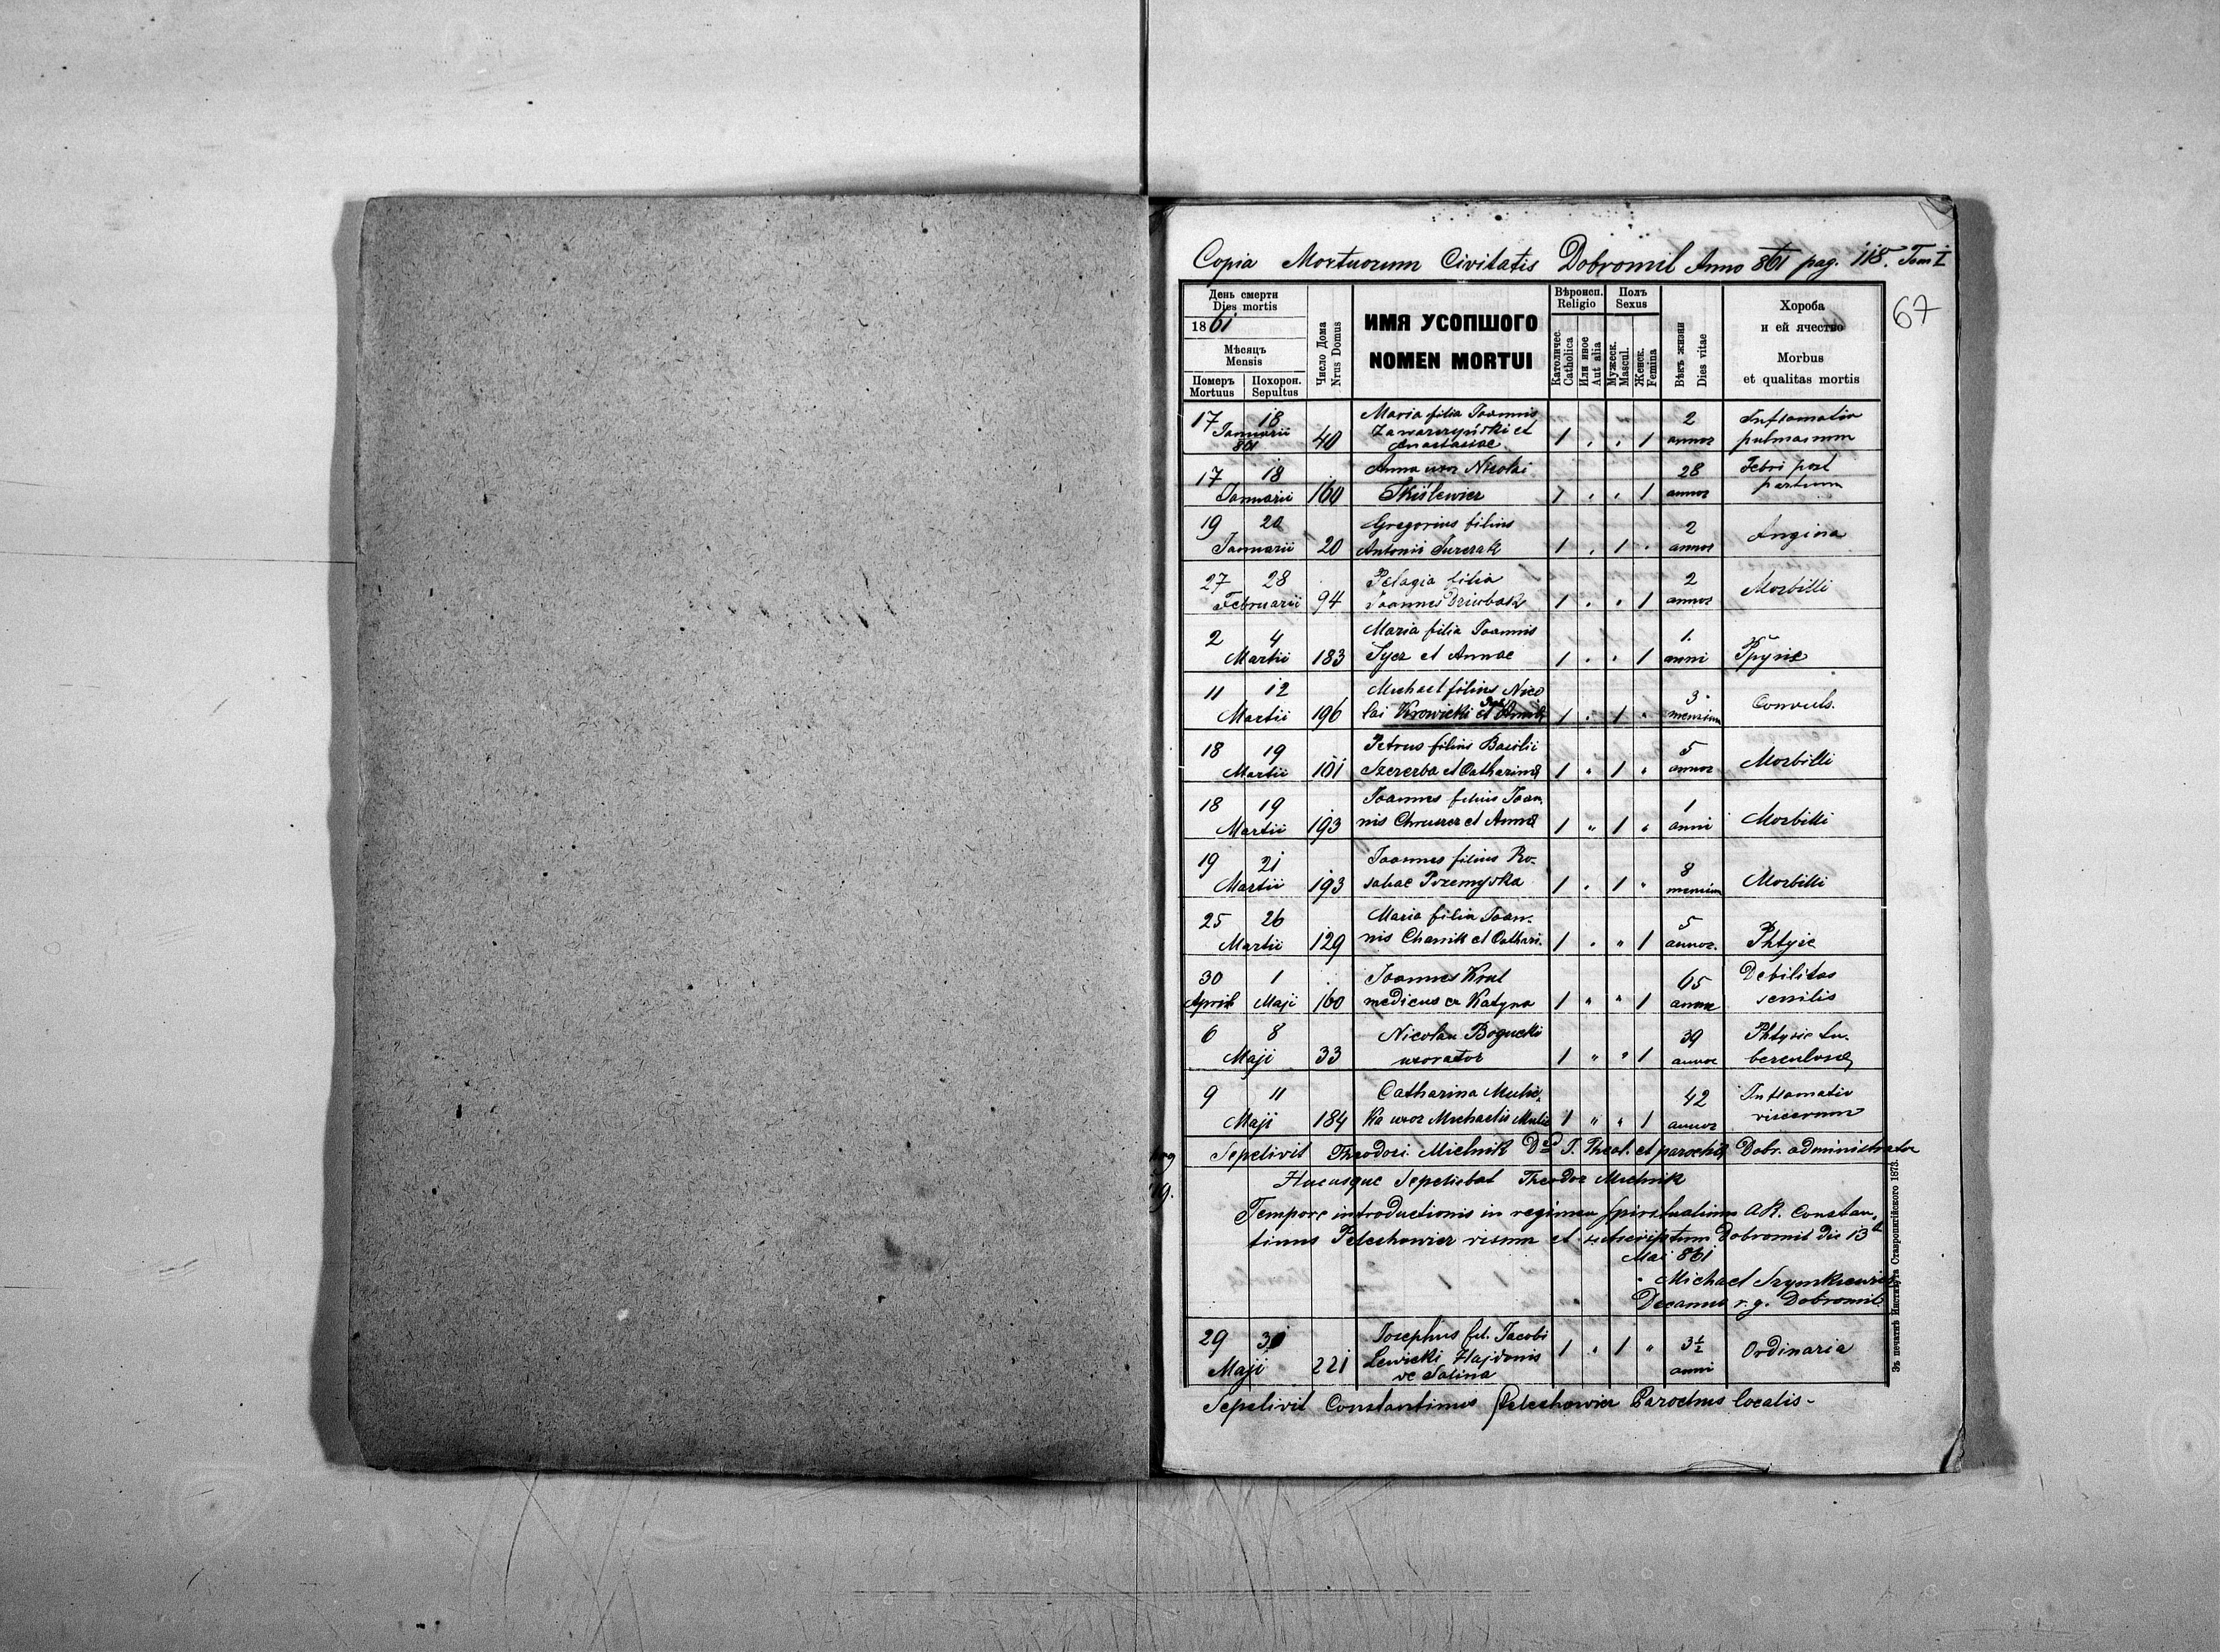 Copia Mortuorum Civitatis Dobromil Anno 861 pag. 118. Tom I
67
День смерти
Dies mortis
1861
Мѣсяцъ
Mensis
Померъ Mortuus
Похорон. Sepultus
Число Дома
Nrus Domus
ИМЯ УСОПШОГО
NOMEN MORTUI
Вѣроисп.
Religio
Католичес.
Catholica
Или иное
Aut alia
Полъ
Sexus
Мужеск.
Mascul.
Женск.
Femina
Вѣкъ жизни
Dies vitae
Хороба
и ей ячество
Morbus
et qualitas mortis
17 18 Maria filia Joannis 2 Inflamatio
Januarii 861 40 Zawarzyński et Anastasiae 1 . . 1 annor pulmonum
17 18 Anna uxor Nicolai 28 Febri post
Januarii 160 1 . . 1 annor partum
19 20 Gregorius filius 2 Angina
Januarii 20 Antonii Turczak 1 . 1 . annor
27 28 Pelagia filia 2 Morbilli
Februarii 94 Joannes Dziubak 1 . . 1 annor
2 4 Maria filia Joannis 1.
Martii 183 et Annae 1 . . 1 anni
11 12 Michael filius Nico 3
Martii 196 lai Krowicki et 1 . 1 . mensium Convuls.
18 19 Petrus filius Basilii 5
Martii 101 Szczerba et Catharina 1 . 1 . annor Morbilli
18 19 Joannes filius Joan. 1
Martii 193 nis et Anna 1 " 1 " anni Morbilli
19 21 Joannes filius Ro- 8
Martii 193 saliae Przemyska 1 . 1 . mensium Morbilli
25 26 Maria filia Joan- 5
Martii 129 nis Charik et Cathari. 1 . " 1 annor. Phtysic
30 1 Joannes 65 Debilitas
April Maji 160 medicus ex Katyna 1 " " 1 annor senilis
6 8 Nicolau Bogucki 39 Phtysic tu-
Maji 33 uxorator 1 " " 1 annor berculosa
9 11 Catharina 42 Inflamatio
Maji 184 ka uxor Michaelis 1 " " 1 annor viscerum
Sepelivit Theodori Mielnik T. Theol. et parochiae Dobr. administrator
Hucusque Sepeliebat Theodor Mielnik
Tempore introductionis in regimen spiritualium AR. Constan-
tinus Pelechowicz visum et subscriptum Dobromil die 13
Mai 861
Michael Szymkiewicz
Decanus r. g. Dobromil
29 31 Josephus fil. Jacobi 1 " 1 " 3½ Ordinaria
Maji 221 Lewicki Hajdonis anni
ve Salina
Sepelivit Constantinus Pelechowicz Parochus localis-
Зъ печатнѣ Института Ставропигійского 1873.